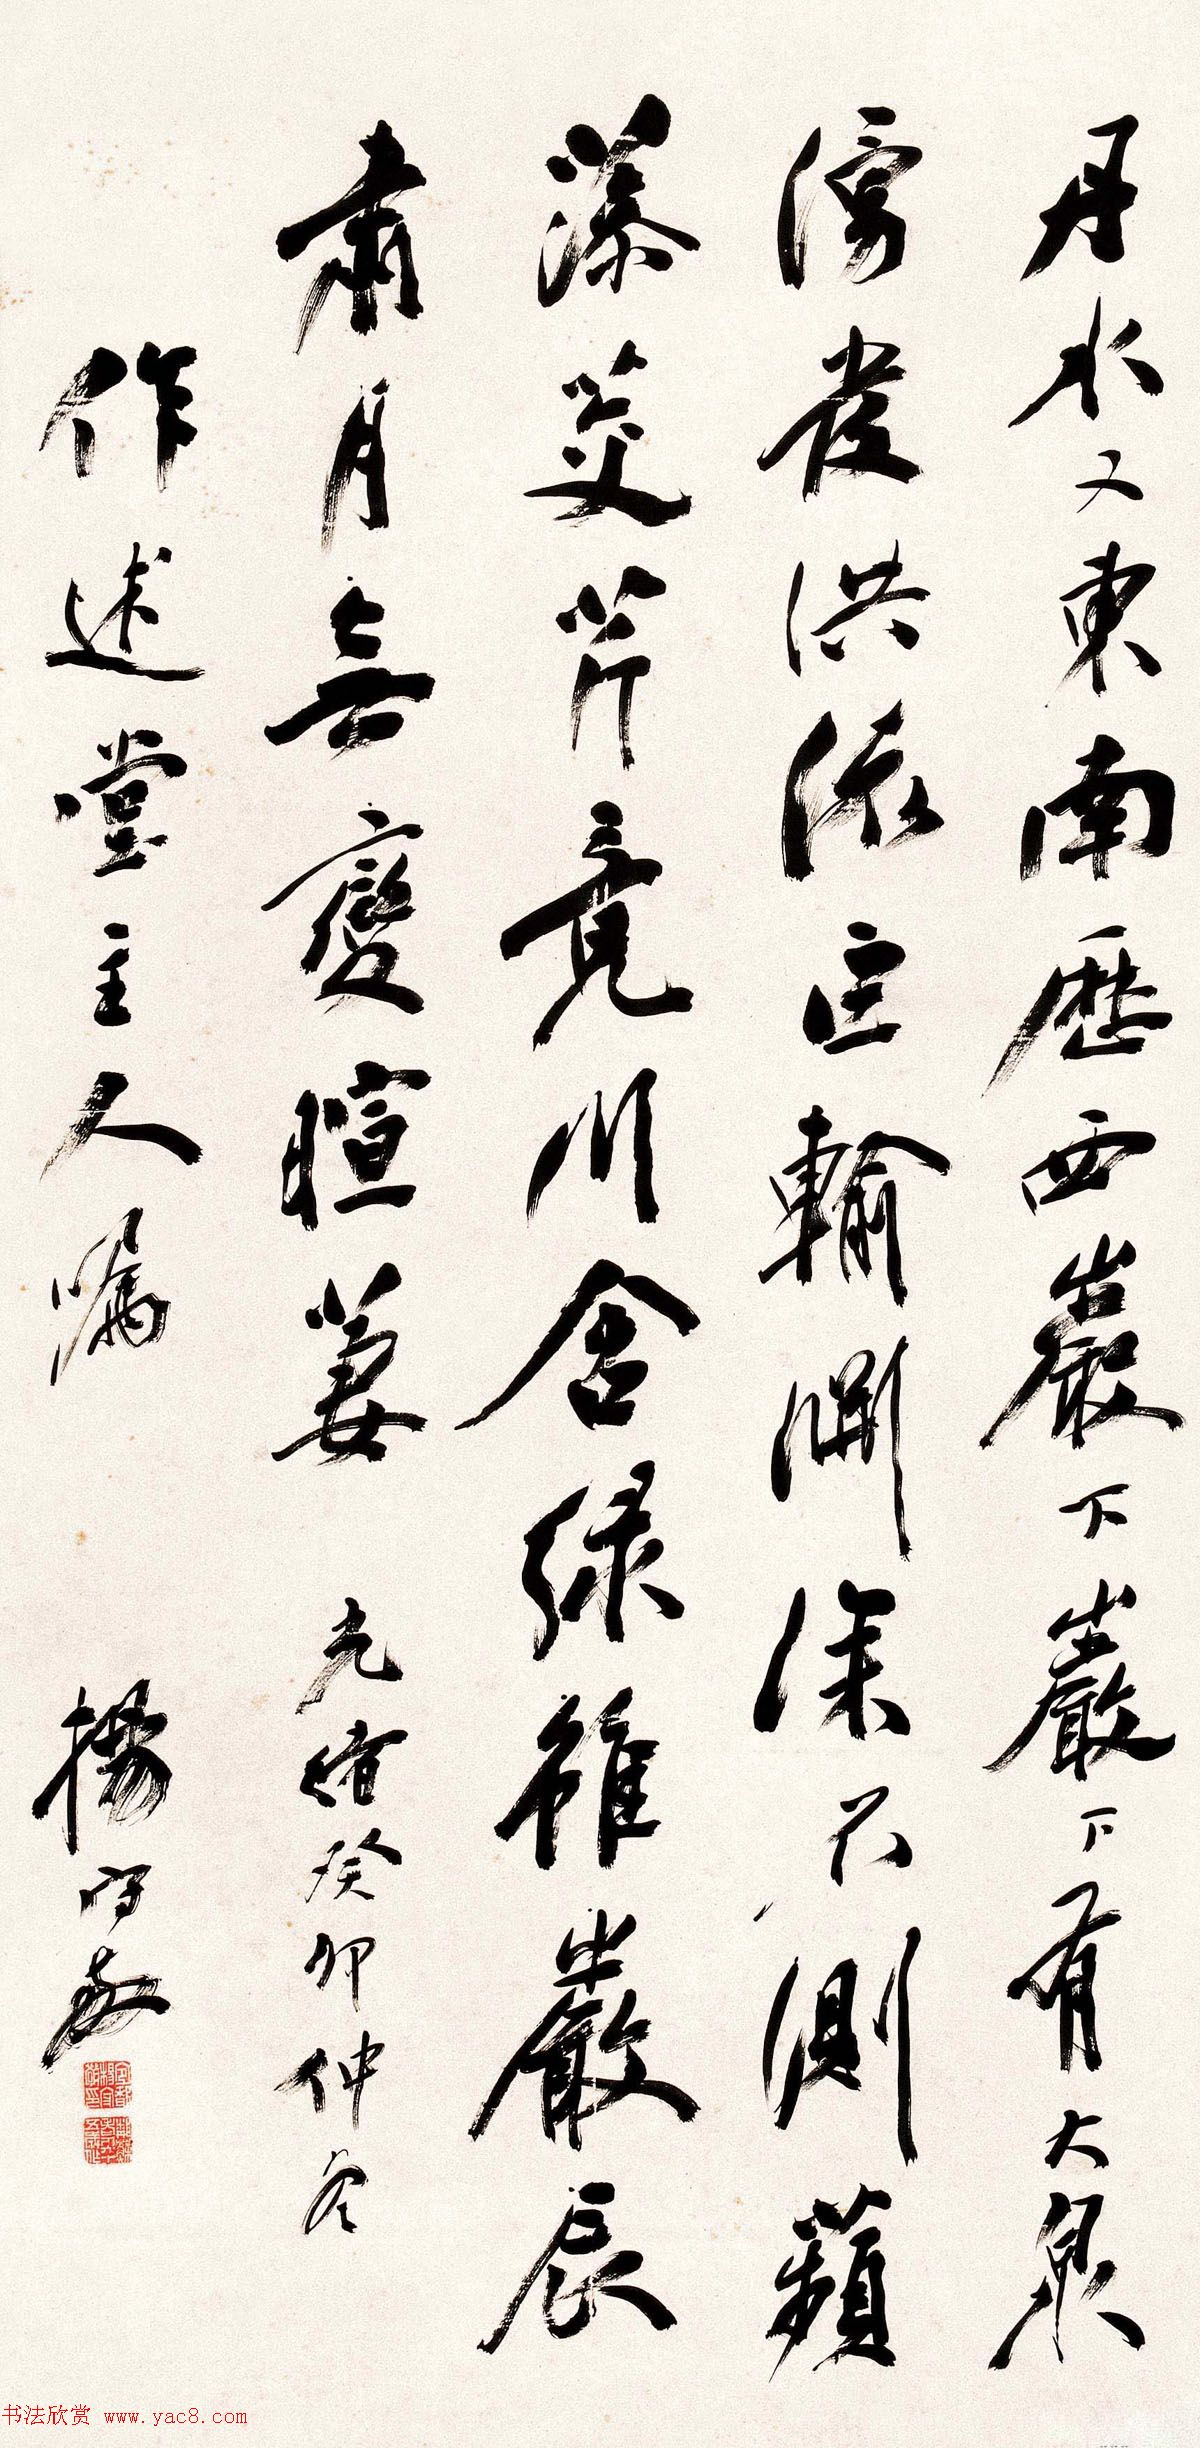 丹水又東南歷西巖下巖下有大泉
湧發洪流巨輸淵深不測蘋
藻茭芹竟川含綠雖嚴辰
肅月無變暄萋 光緒癸卯仲冬
作述堂主人嘱 楊守敬
书法欣赏 www.yac8.com